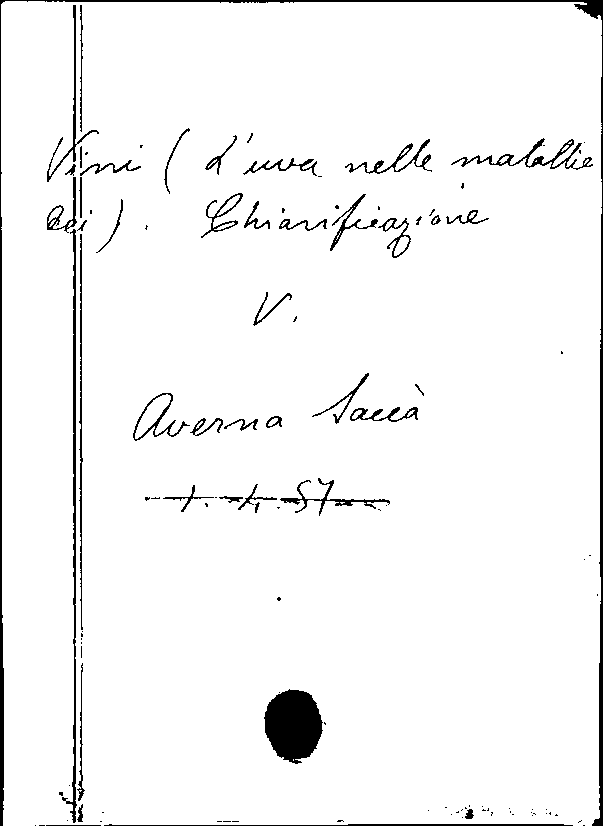 Vini (L'uva nelle malattie
dei). Chiarificazione
V.
Averna Saccà
1.4.57